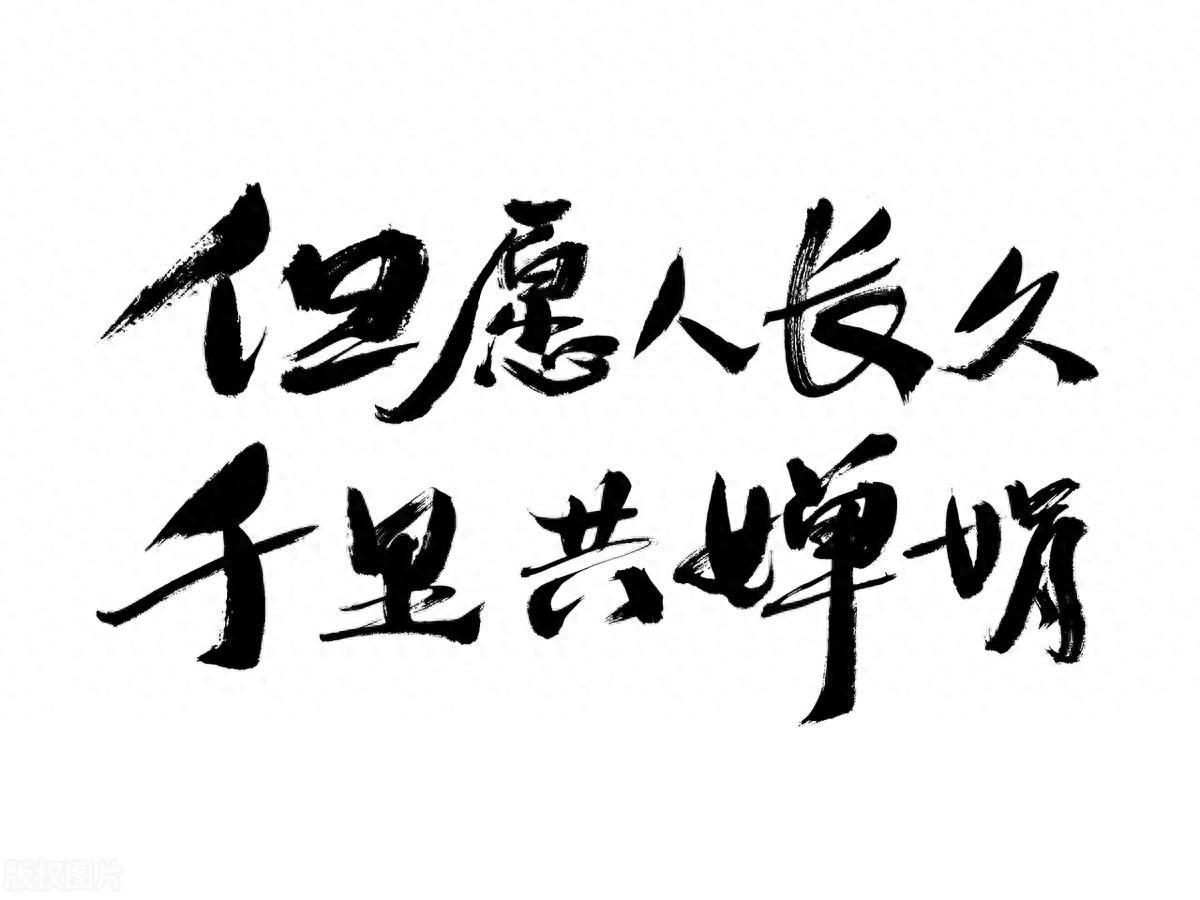 但愿人长久
千里共婵娟
版权图片